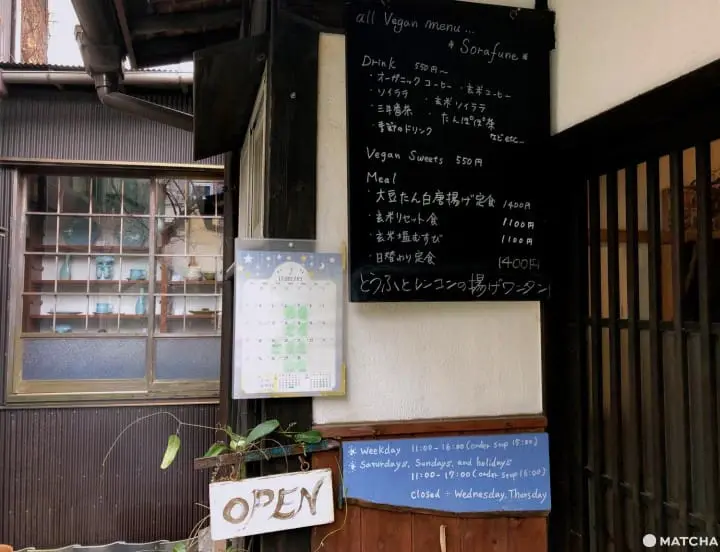 all Vegan menu...
* Sorafune *
Drink 550円〜
・オーガニックコーヒー ・玄米コーヒー
・ソイララ ・玄米ソイララ
・三年番茶 ・たんぽぽ茶
・季節のドリンク
などetc...
Vegan Sweets 550円
Meal
・大豆たん白唐揚げ定食 1400円
・玄米リセット食 1100円
・玄米塩むすび 1100円
・日替わり定食 1400円
とうふとレンコンの揚げワンタン
* Weekday 11:00-16:00 (order stop 15:00)
* Saturdays, Sundays, and holidays
11:00-17:00 (order stop 16:00)
Closed : Wednesday, Thursday
OPEN
MATCHA